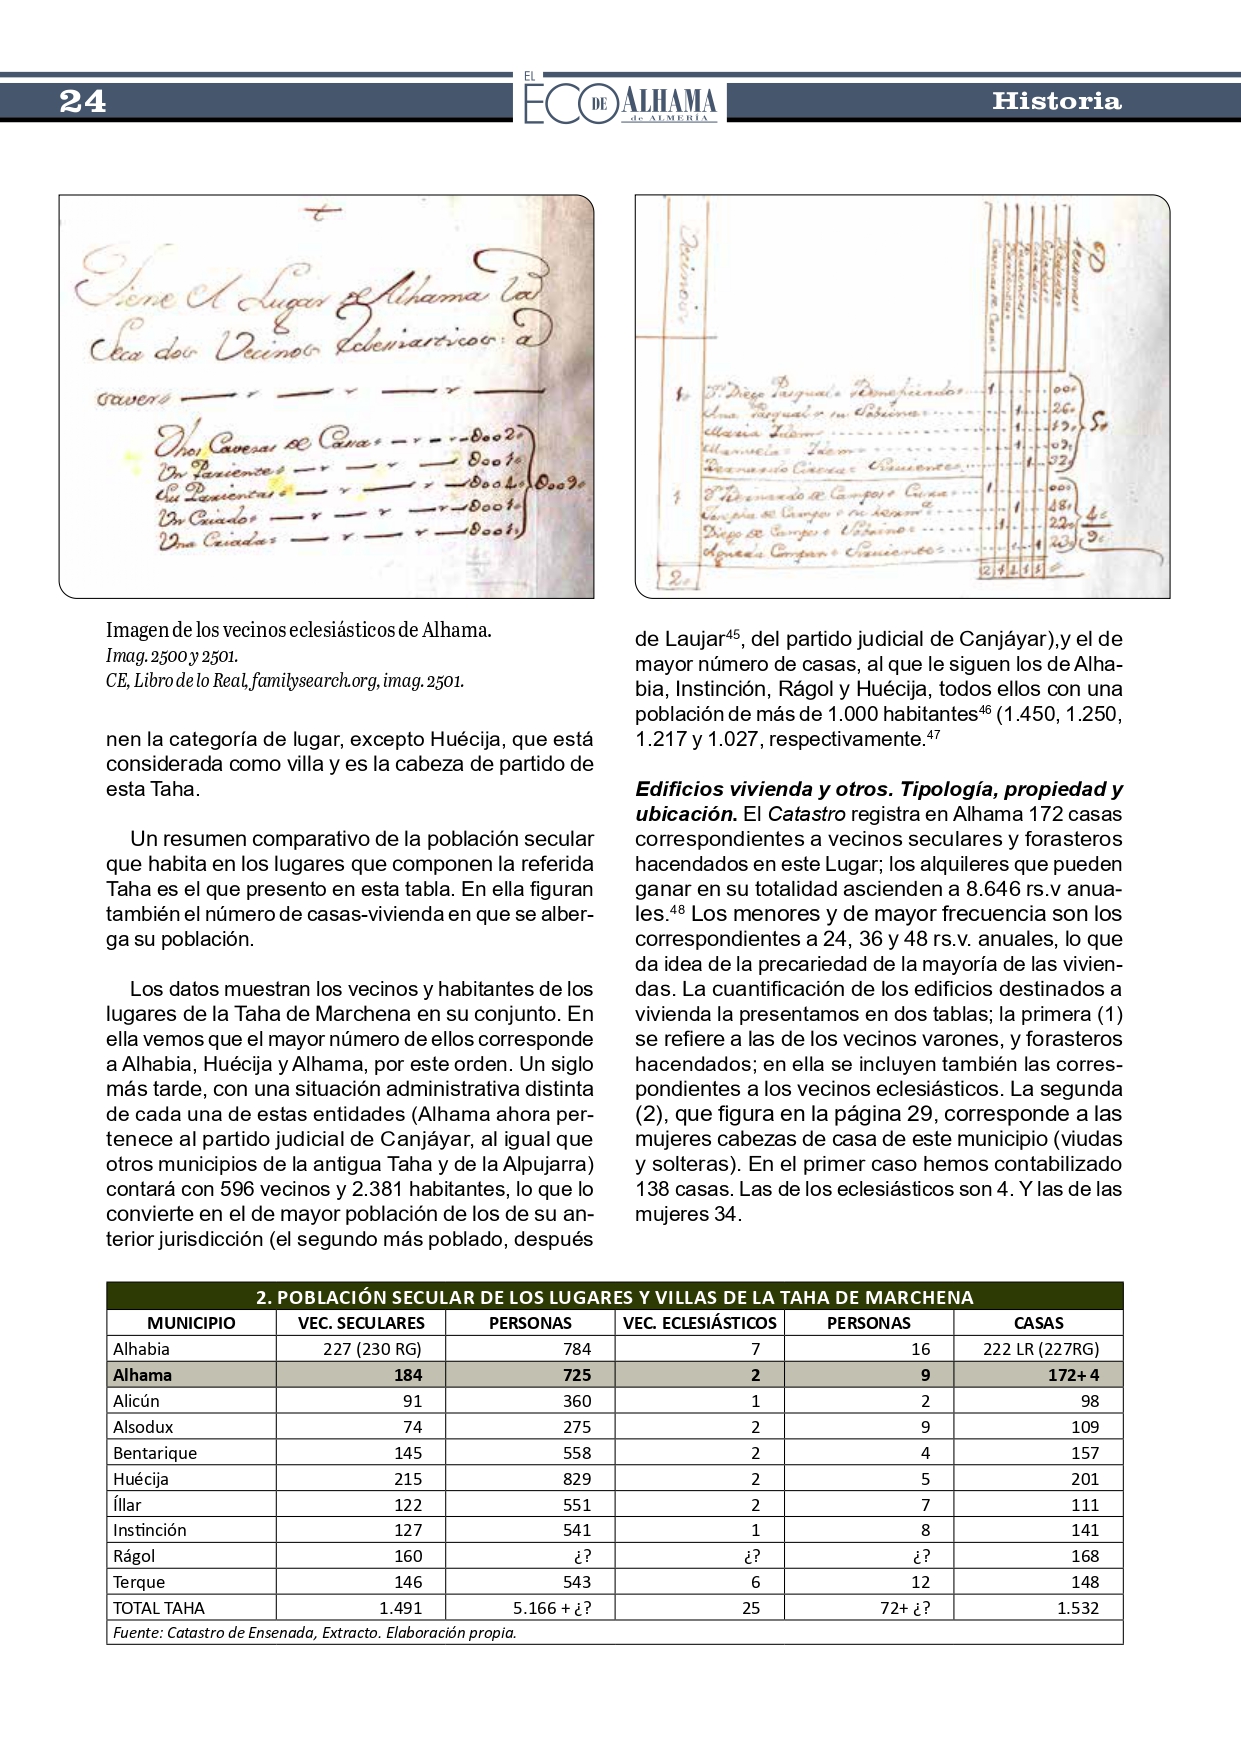 24
EL
ECO DE ALHAMA
de ALMERÍA
Historia
Tiene el Lugar de Alhama la
Seca dos Vecinos Eclesiasticos: a
saver
Dhos Cavezas de Casas 0002
Un Pariente 0001
0009
Un Criado 0001
Una Criada 0001
Vecinos
Personas
1. Dn. Diego Pasqual Beneficiado 1
Ana Pasqual su Sobrina 1 26
Maria Idem 1
Manuela Idem 1
Bernardo Sirviente 1
5
1 Dn. Bernardo de Campos Cura 1
de Campos su herma.a 1 48
Diego de Campos Sobrino 1 22
Sirviente 1
4
9
2 2 1 4 1 1
Imagen de los vecinos eclesiásticos de Alhama.
Imag. 2500 y 2501.
CE, Libro de lo Real, familysearch.org, imag. 2501.
nen la categoría de lugar, excepto Huécija, que está
considerada como villa y es la cabeza de partido de
esta Taha.
Un resumen comparativo de la población secular
que habita en los lugares que componen la referida
Taha es el que presento en esta tabla. En ella figuran
también el número de casas-vivienda en que se alber-
ga su población.
Los datos muestran los vecinos y habitantes de los
lugares de la Taha de Marchena en su conjunto. En
ella vemos que el mayor número de ellos corresponde
a Alhabia, Huécija y Alhama, por este orden. Un siglo
más tarde, con una situación administrativa distinta
de cada una de estas entidades (Alhama ahora per-
tenece al partido judicial de Canjáyar, al igual que
otros municipios de la antigua Taha y de la Alpujarra)
contará con 596 vecinos y 2.381 habitantes, lo que lo
convierte en el de mayor población de los de su an-
terior jurisdicción (el segundo más poblado, después
de Laujar45, del partido judicial de Canjáyar),y el de
mayor número de casas, al que le siguen los de Alha-
bia, Instinción, Rágol y Huécija, todos ellos con una
población de más de 1.000 habitantes46 (1.450, 1.250,
1.217 y 1.027, respectivamente.47
Edificios vivienda y otros. Tipología, propiedad y
ubicación. El Catastro registra en Alhama 172 casas
correspondientes a vecinos seculares y forasteros
hacendados en este Lugar; los alquileres que pueden
ganar en su totalidad ascienden a 8.646 rs.v anua-
les.48 Los menores y de mayor frecuencia son los
correspondientes a 24, 36 y 48 rs.v. anuales, lo que
da idea de la precariedad de la mayoría de las vivien-
das. La cuantificación de los edificios destinados a
vivienda la presentamos en dos tablas; la primera (1)
se refiere a las de los vecinos varones, y forasteros
hacendados; en ella se incluyen también las corres-
pondientes a los vecinos eclesiásticos. La segunda
(2), que figura en la página 29, corresponde a las
mujeres cabezas de casa de este municipio (viudas
y solteras). En el primer caso hemos contabilizado
138 casas. Las de los eclesiásticos son 4. Y las de las
mujeres 34.
2. POBLACIÓN SECULAR DE LOS LUGARES Y VILLAS DE LA TAHA DE MARCHENA
MUNICIPIO VEC. SECULARES PERSONAS VEC. ECLESIÁSTICOS PERSONAS CASAS
Alhabia 227 (230 RG) 784 7 16 222 LR (227RG)
Alhama 184 725 2 9 172+ 4
Alicún 91 360 1 2 98
Alsodux 74 275 2 9 109
Bentarique 145 558 2 4 157
Huécija 215 829 2 5 201
Íllar 122 551 2 7 111
Instinción 127 541 1 8 141
Rágol 160 ¿? ¿? ¿? 168
Terque 146 543 6 12 148
TOTAL TAHA 1.491 5.166 + ¿? 25 72+ ¿? 1.532
Fuente: Catastro de Ensenada, Extracto. Elaboración propia.